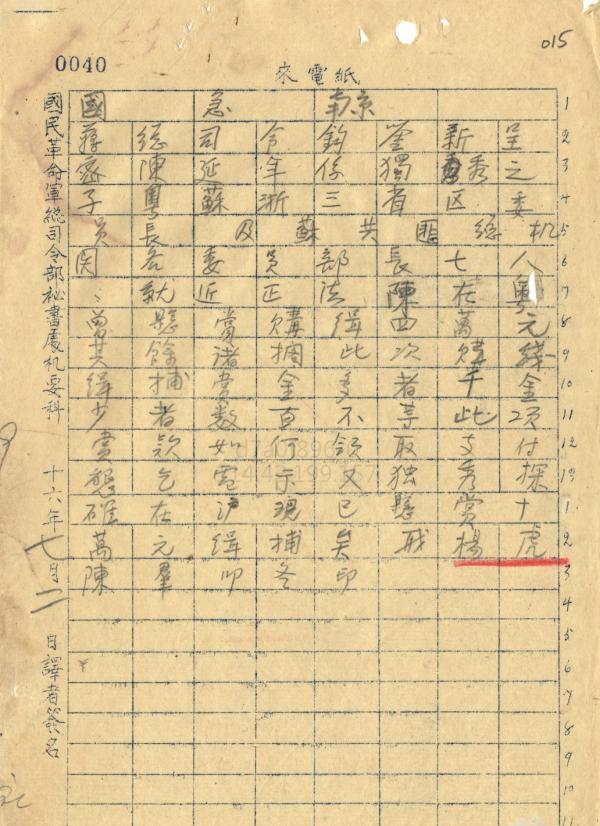 0040
015
來電紙
國急南京
蔣總司令鈞鑒新呈
密陳延年係獨秀之
子粵蘇浙三省区委
員長及蘇共匪總机
関各委員部長七人
就近正法陳在粵
曾懸賞購緝四萬元
其餘諸 此次購綫
緝捕賞金多者千金
少者数百不等此項
賞款如何領取支付
懇乞電示又独秀探
確在沪現已懸賞十
萬元緝捕矣 楊虎
陳羣叩冬印
國民革命軍總司令部祕書處机要科 十六年七月二日譯者簽名
1
2
3
4
5
6
7
8
9
10
11
12
13
1
2
3
4
5
6
7
8
9
10
11